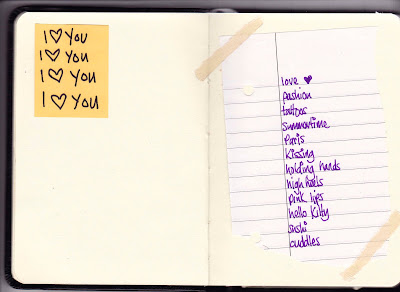 I ♡ You
I ♡ You
I ♡ You
I ♡ You
love ♥
fashion
tattoos
summertime
Paris
kissing
holding hands
high heels
pink lips
hello kitty
sushi
cuddles